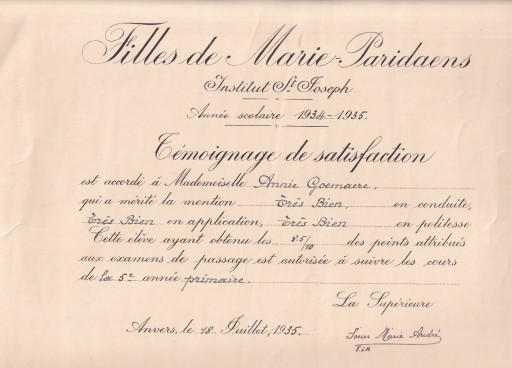 Filles de Marie-Paridaens
Institut St Joseph
Année scolaire 1934-1935.
Témoignage de satisfaction
est accordé à Mademoiselle Annie Goemaere.
qui a mérité la mention Très Bien, en conduite,
Très Bien en application, Très Bien en politesse
Cette élève ayant obtenu les 8.5/10 des points attribués
aux examens de passage est autorisée à suivre les cours
de la 5e année primaire.
La Supérieure
Anvers, le 18 Juillet, 1935.
Sœur Marie André